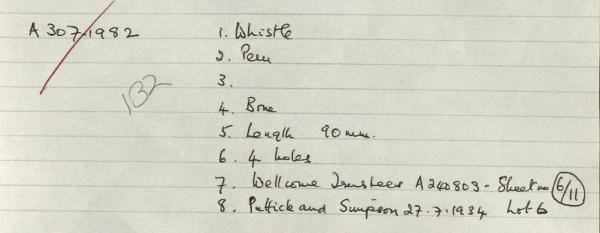 A 307.1982 1. Whistle
2. Peru
3.
132
4. Bone
5. Length 90mm.
6. 4 holes
7. Wellcome Trustees A240803 - Sheet no 6/11
8. Puttick and Simpson 27.7.1934 Lot 6